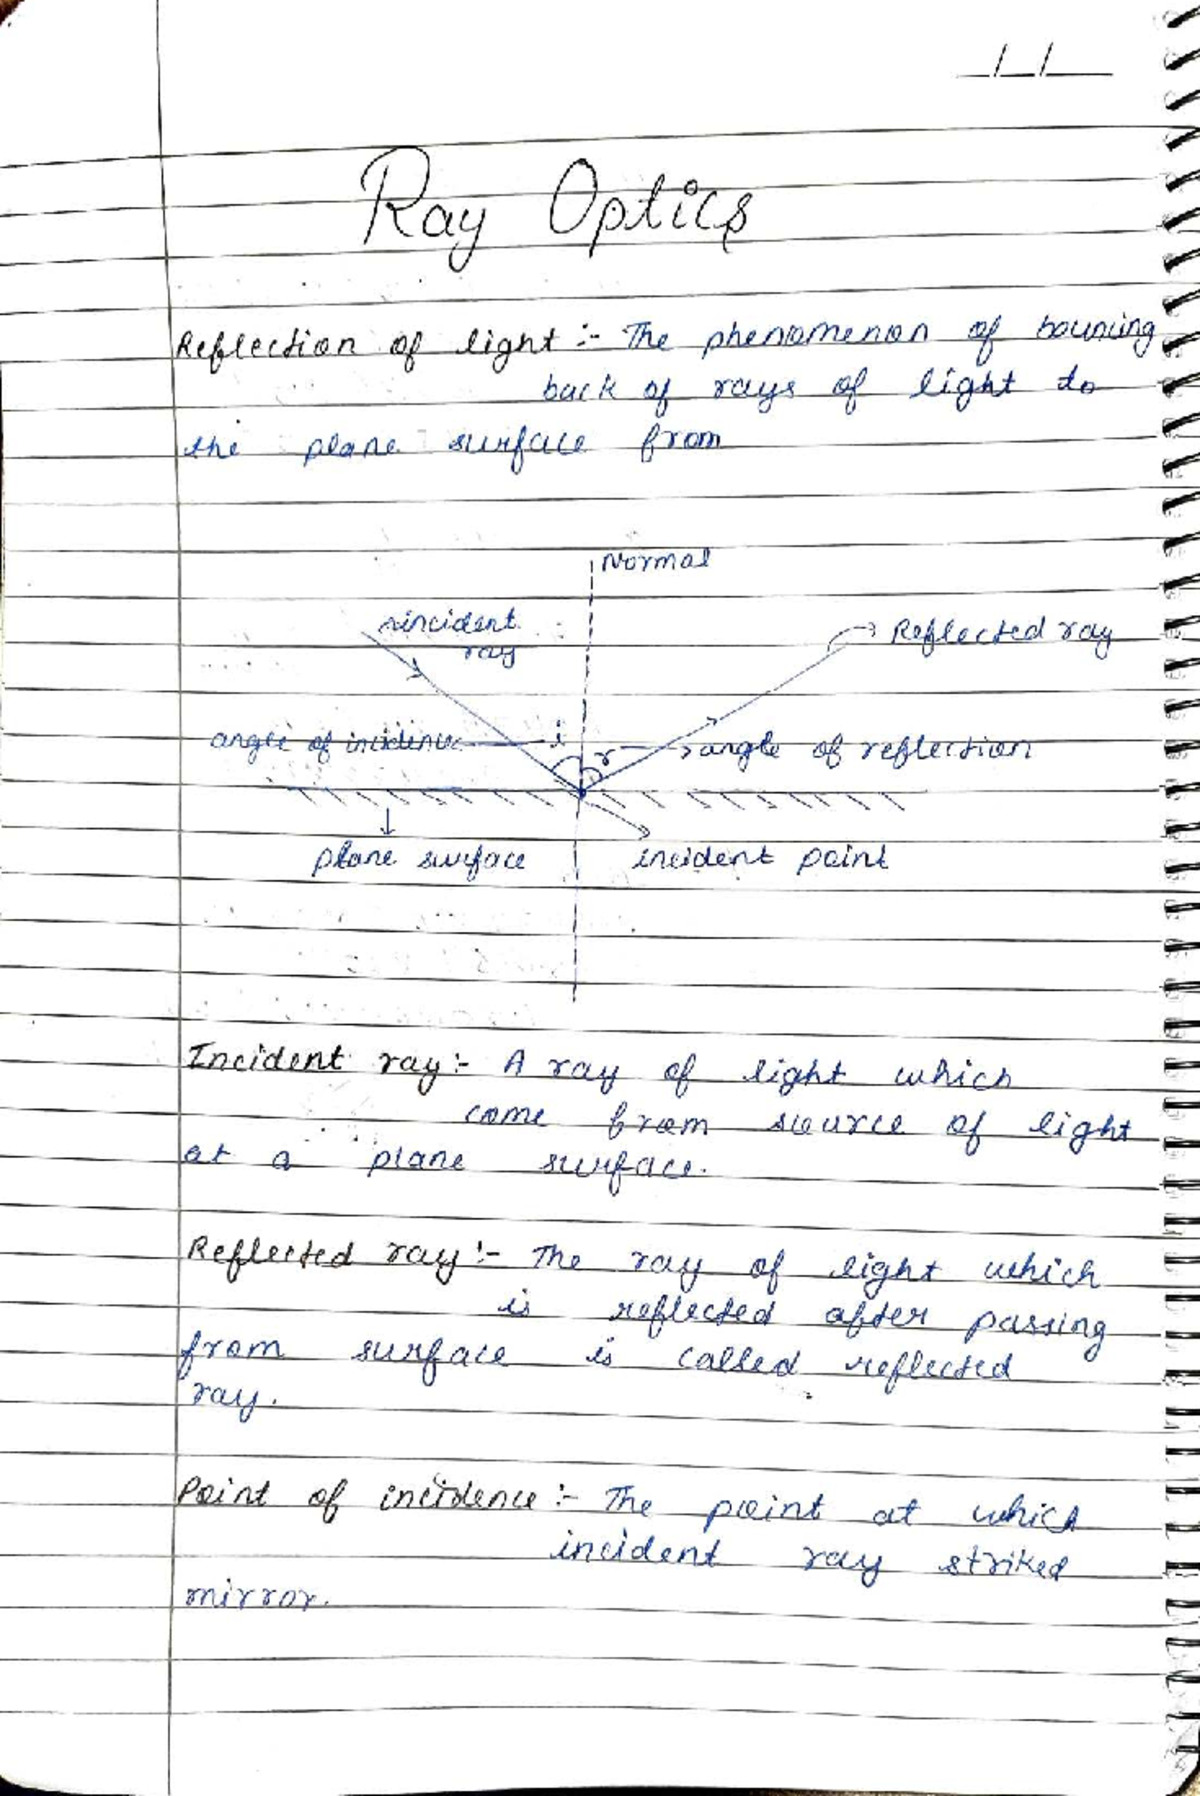 Ray Optics
Reflection of light :- The phenomenon of bouncing
back of rays of light to
the plane surface from
Normal
incident
ray
Reflected ray
angle of incidence
i
r
angle of reflection
plane surface
incident point
Incident ray :- A ray of light which
come from source of light
at a plane surface.
Reflected ray :- The ray of light which
is reflected after passing
from surface is called reflected
ray.
Point of incidence :- The point at which
incident ray striked
mirror.